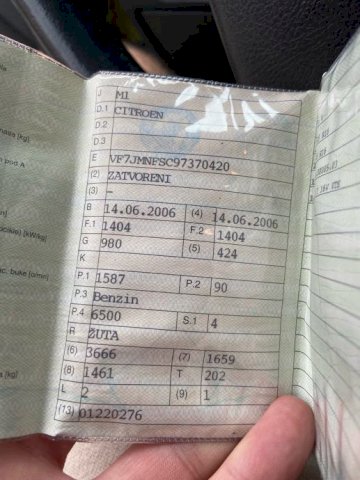 J M1
D.1 CITROEN
D.2
D.3
E VF7JMNFSC97370420
(2) ZATVORENI
(3) -
B 14.06.2006 (4) 14.06.2006
F.1 1404 F.2 1404
G 980 (5) 424
K
P.1 1587 P.2 90
P.3 Benzin
P.4 6500 S.1 4
R ŽUTA
(6) 3666 (7) 1659
(8) 1461 T 202
L 2 (9) 1
(13) 01220276
masa [kg]
pod A
[kW/kg]
buke
[kg]